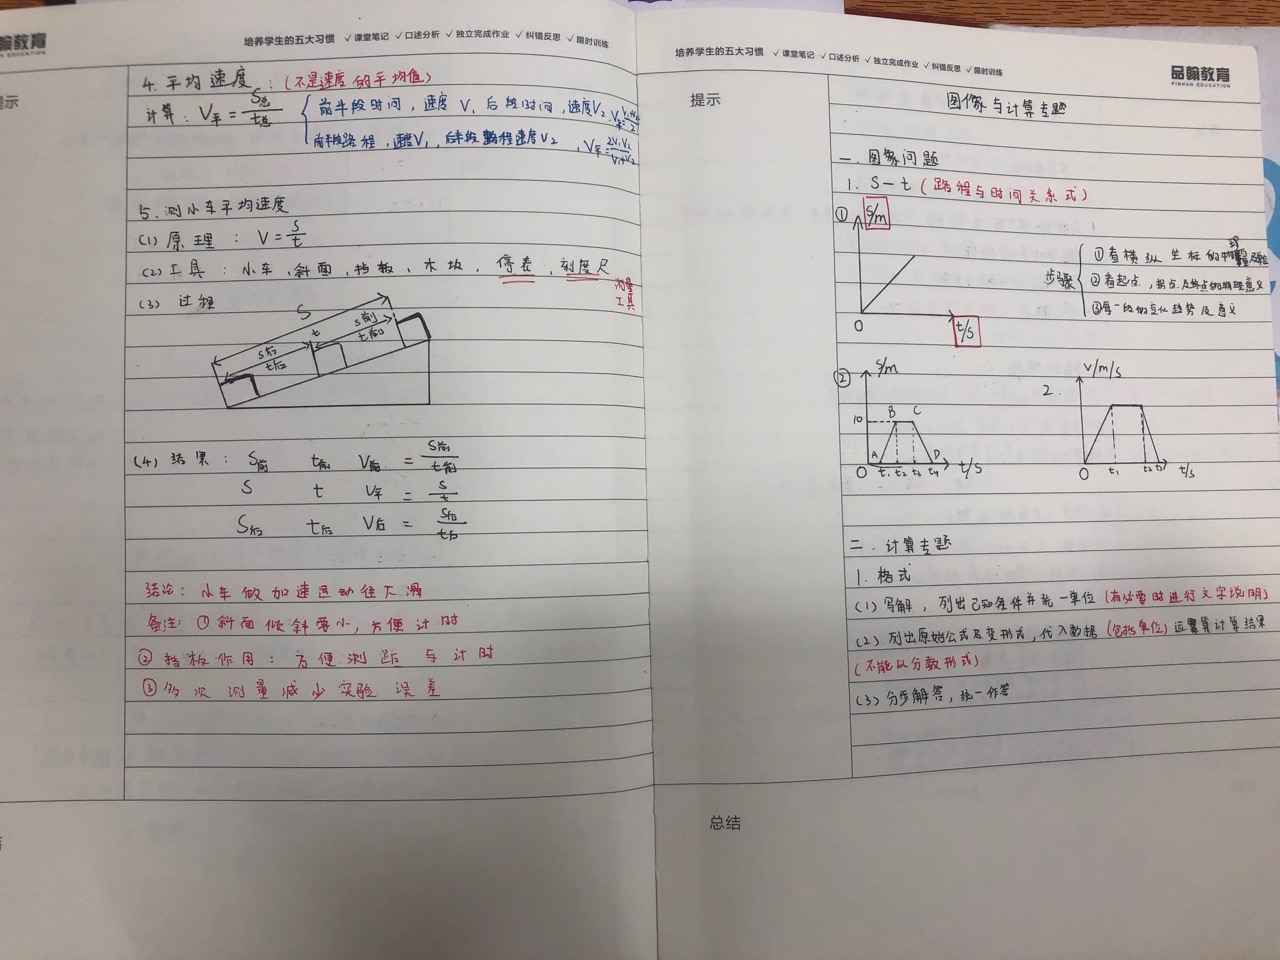 品翰教育
PINHAN EDUCATION
培养学生的五大习惯 ✓课堂笔记 ✓口述分析 ✓独立完成作业 ✓纠错反思 ✓限时训练
提示
4. 平均速度:(不是速度的平均值)
计算: V平 = S总/t总 { 前半段时间,速度V₁ 后段时间,速度V₂. V平=(V₁+V₂)/2
前半段路程,速度V₁,后半段路程速度V₂,V平=2V₁V₂/(V₁+V₂)
5. 测小车平均速度
(1) 原理: V=s/t
(2) 工具: 小车,斜面,挡板,木块,停表,刻度尺
测量工具
(3) 过程
S
t
S前
t前
S后
t后
(4) 结果: S前 t前 V前 = S前/t前
S t V平 = s/t
S后 t后 V后 = S后/t后
结论: 小车做加速运动往下滑
备注: ①斜面倾斜要小,方便计时
②挡板作用: 方便测距与计时
③多次测量减少实验误差
培养学生的五大习惯 ✓课堂笔记 ✓口述分析 ✓独立完成作业 ✓纠错反思 ✓限时训练
品翰教育
PINHAN EDUCATION
提示
图像与计算专题
一. 图象问题
1. S-t (路程与时间关系式)
① S/m
O t/s
步骤 { ①看横纵坐标的物理
②看起点,拐点及终点的物理意义
③每一段的变化趋势及意义
② S/m
10 B C
A D
O t₁ t₂ t₃ t₄ t/s
2. V/m/s
O t₁ t₂ t/s
二. 计算专题
1. 格式
(1) 写解,列出已知条件并统一单位(有必要时进行文字说明)
(2) 列出原始公式及变形式,代入数据(包括单位)运算计算结果
(不能以分数形式)
(3) 分步解答,统一作答
总结